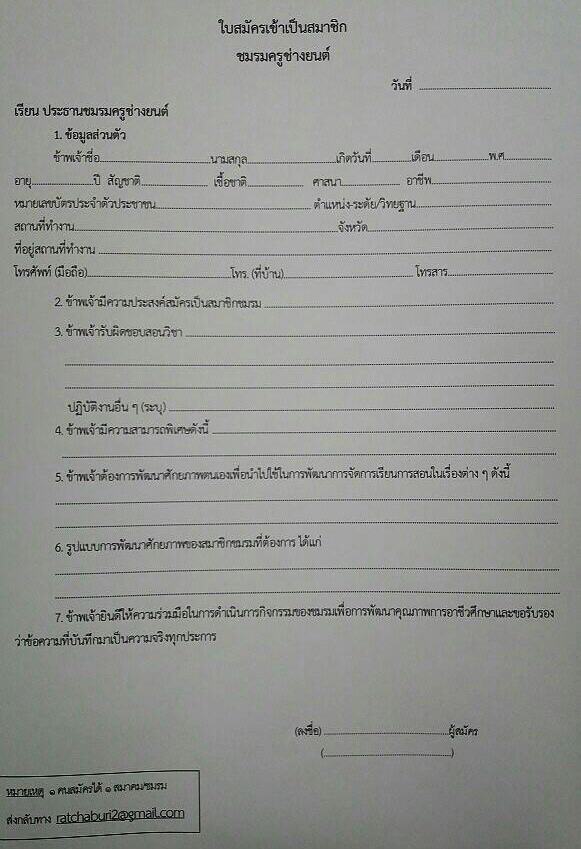 ใบสมัครเข้าเป็นสมาชิก
ชมรมครูช่างยนต์
วันที่ ........................................
เรียน ประธานชมรมครูช่างยนต์
1. ข้อมูลส่วนตัว
ข้าพเจ้าชื่อ..............................นามสกุล........................เกิดวันที่...........เดือน...............พ.ศ.............
อายุ...............ปี สัญชาติ.................. เชื้อชาติ............... ศาสนา................ อาชีพ..............................
หมายเลขบัตรประจำตัวประชาชน........................................ตำแหน่ง-ระดับ/วิทยฐานะ..............................
สถานที่ทำงาน....................................................................จังหวัด...............................................
ที่อยู่สถานที่ทำงาน ..............................................................................................................
โทรศัพท์ (มือถือ)....................................โทร. (ที่บ้าน)................................ โทรสาร..........................
2. ข้าพเจ้ามีความประสงค์สมัครเป็นสมาชิกชมรม ......................................................................
3. ข้าพเจ้ารับผิดชอบสอนวิชา ..........................................................................................
..............................................................................................................................
..............................................................................................................................
ปฏิบัติงานอื่น ๆ (ระบุ) ................................................................................................
4. ข้าพเจ้ามีความสามารถพิเศษดังนี้ ....................................................................................
..............................................................................................................................
5. ข้าพเจ้าต้องการพัฒนาศักยภาพตนเองเพื่อนำไปใช้ในการพัฒนาการจัดการเรียนการสอนในเรื่องต่าง ๆ ดังนี้
..............................................................................................................................
..............................................................................................................................
6. รูปแบบการพัฒนาศักยภาพของสมาชิกชมรมที่ต้องการ ได้แก่
..............................................................................................................................
..............................................................................................................................
7. ข้าพเจ้ายินดีให้ความร่วมมือในการดำเนินการกิจกรรมของชมรมเพื่อการพัฒนาคุณภาพการอาชีวศึกษาและขอรับรอง
ว่าข้อความที่บันทึกมาเป็นความจริงทุกประการ
(ลงชื่อ) ........................................ผู้สมัคร
(........................................)
หมายเหตุ ๑ คนสมัครได้ ๑ สมาคม/ชมรม
ส่งกลับทาง ratchaburi2@gmail.com